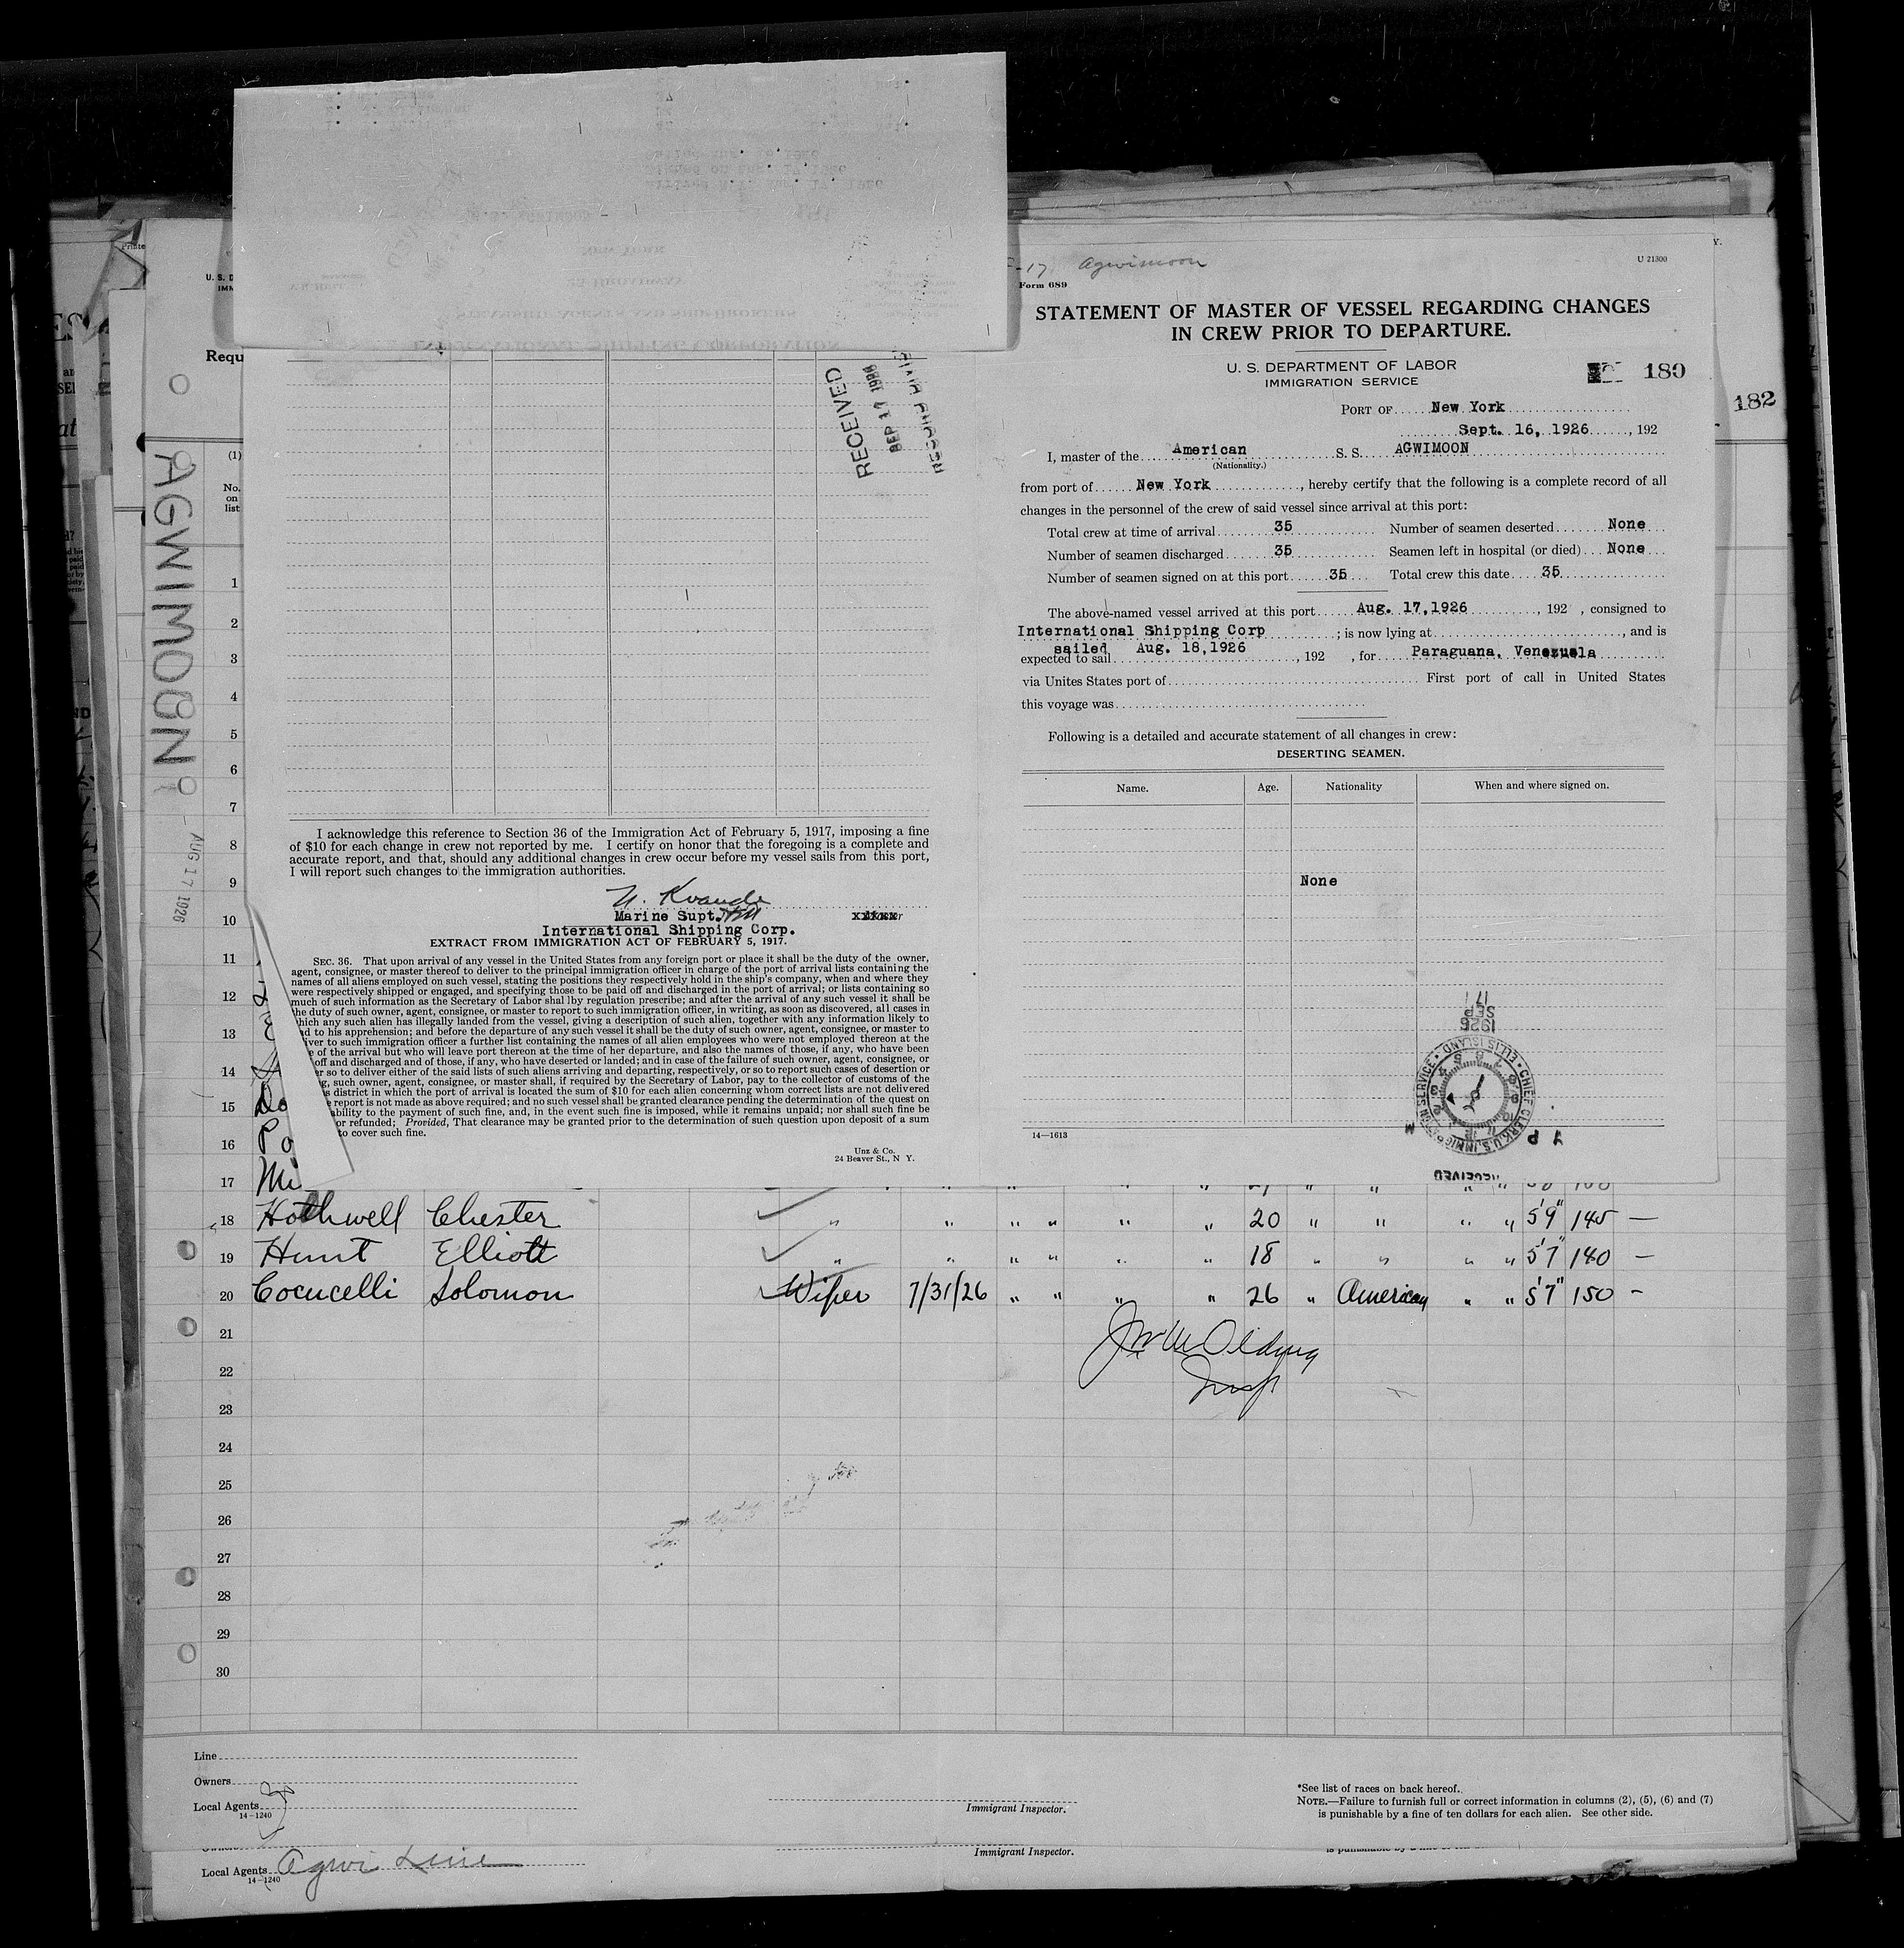 U. S. D
IMM
Requ
AGWIMOON
AUG 17 1926
(1)
No.
on
list
1
2
3
4
5
6
7
8
9
10
11
12
13
14
15
16
17
RECEIVED
SEP 17 1926
I acknowledge this reference to Section 36 of the Immigration Act of February 5, 1917, imposing a fine
of $10 for each change in crew not reported by me. I certify on honor that the foregoing is a complete and
accurate report, and that, should any additional changes in crew occur before my vessel sails from this port,
I will report such changes to the immigration authorities.
Marine Supt.
International Shipping Corp.
EXTRACT FROM IMMIGRATION ACT OF FEBRUARY 5, 1917.
SEC. 36. That upon arrival of any vessel in the United States from any foreign port or place it shall be the duty of the owner,
agent, consignee, or master thereof to deliver to the principal immigration officer in charge of the port of arrival lists containing the
names of all aliens employed on such vessel, stating the positions they respectively hold in the ship's company, when and where they
were respectively shipped or engaged, and specifying those to be paid off and discharged in the port of arrival; or lists containing so
much of such information as the Secretary of Labor shal lby regulation prescribe; and after the arrival of any such vessel it shall be
he duty of such owner, agent, consignee, or master to report to such immigration officer, in writing, as soon as discovered, all cases in
hich any such alien has illegally landed from the vessel, giving a description of such alien, together with any information likely to
d to his apprehension; and before the departure of any such vessel it shall be the duty of such owner, agent, consignee, or master to
iver to such immigration officer a further list containing the names of all alien employees who were not employed thereon at the
e of the arrival but who will leave port thereon at the time of her departure, and also the names of those, if any, who have been
off and discharged and of those, if any, who have deserted or landed; and in case of the failure of such owner, agent, consignee, or
er so to deliver either of the said lists of such aliens arriving and departing, respectively, or so to report such cases of desertion or
g, such owner, agent, consignee, or master shall, if required by the Secretary of Labor, pay to the collector of customs of the
s district in which the port of arrival is located the sum of $10 for each alien concerning whom correct lists are not delivered
e report is not made as above required; and no such vessel shall be granted clearance pending the determination of the quest on
ability to the payment of such fine, and, in the event such fine is imposed, while it remains unpaid; nor shall such fine be
or refunded; Provided, That clearance may be granted prior to the determination of such question upon deposit of a sum
to cover such fine.
Unz & Co.
24 Beaver St., N Y.
-17 Agwimoon
U 21300
Form 689
STATEMENT OF MASTER OF VESSEL REGARDING CHANGES
IN CREW PRIOR TO DEPARTURE.
U. S. DEPARTMENT OF LABOR
IMMIGRATION SERVICE
180
182
PORT OF New York
Sept. 16, 1926, 192
I, master of the American S. S. AGWIMOON
(Nationality.)
from port of New York, hereby certify that the following is a complete record of all
changes in the personnel of the crew of said vessel since arrival at this port:
Total crew at time of arrival 35 Number of seamen deserted None
Number of seamen discharged 35 Seamen left in hospital (or died) None
Number of seamen signed on at this port 35 Total crew this date 35
The above-named vessel arrived at this port Aug. 17, 1926, 192 , consigned to
International Shipping Corp ; is now lying at , and is
sailed Aug. 18, 1926
expected to sail , 192 , for Paraguana, Venezuela
via Unites States port of First port of call in United States
this voyage was
Following is a detailed and accurate statement of all changes in crew:
DESERTING SEAMEN.
Name. Age. Nationality When and where signed on.
None
1926
SEP
17
CHIEF CLERK U. S. IMMIGRATION SERVICE • ELLIS ISLAND •
RECEIVED
14—1613
18 Hothwell Chester " " " " " " 20 " " " " 5'9" 145 —
19 Hunt Elliott " " " " " " 18 " " " " 5'7" 140 —
20 Cocucelli Solomon Wiper 7/31/26 " " " " 26 " American " " 5'7" 150 -
21
22
23
24
25
26
27
28
29
30
Line
Owners
Local Agents
14—1240
Immigrant Inspector.
*See list of races on back hereof.
NOTE.—Failure to furnish full or correct information in columns (2), (5), (6) and (7)
is punishable by a fine of ten dollars for each alien. See other side.
Local Agents Agwi Line
14—1240
Immigrant Inspector.